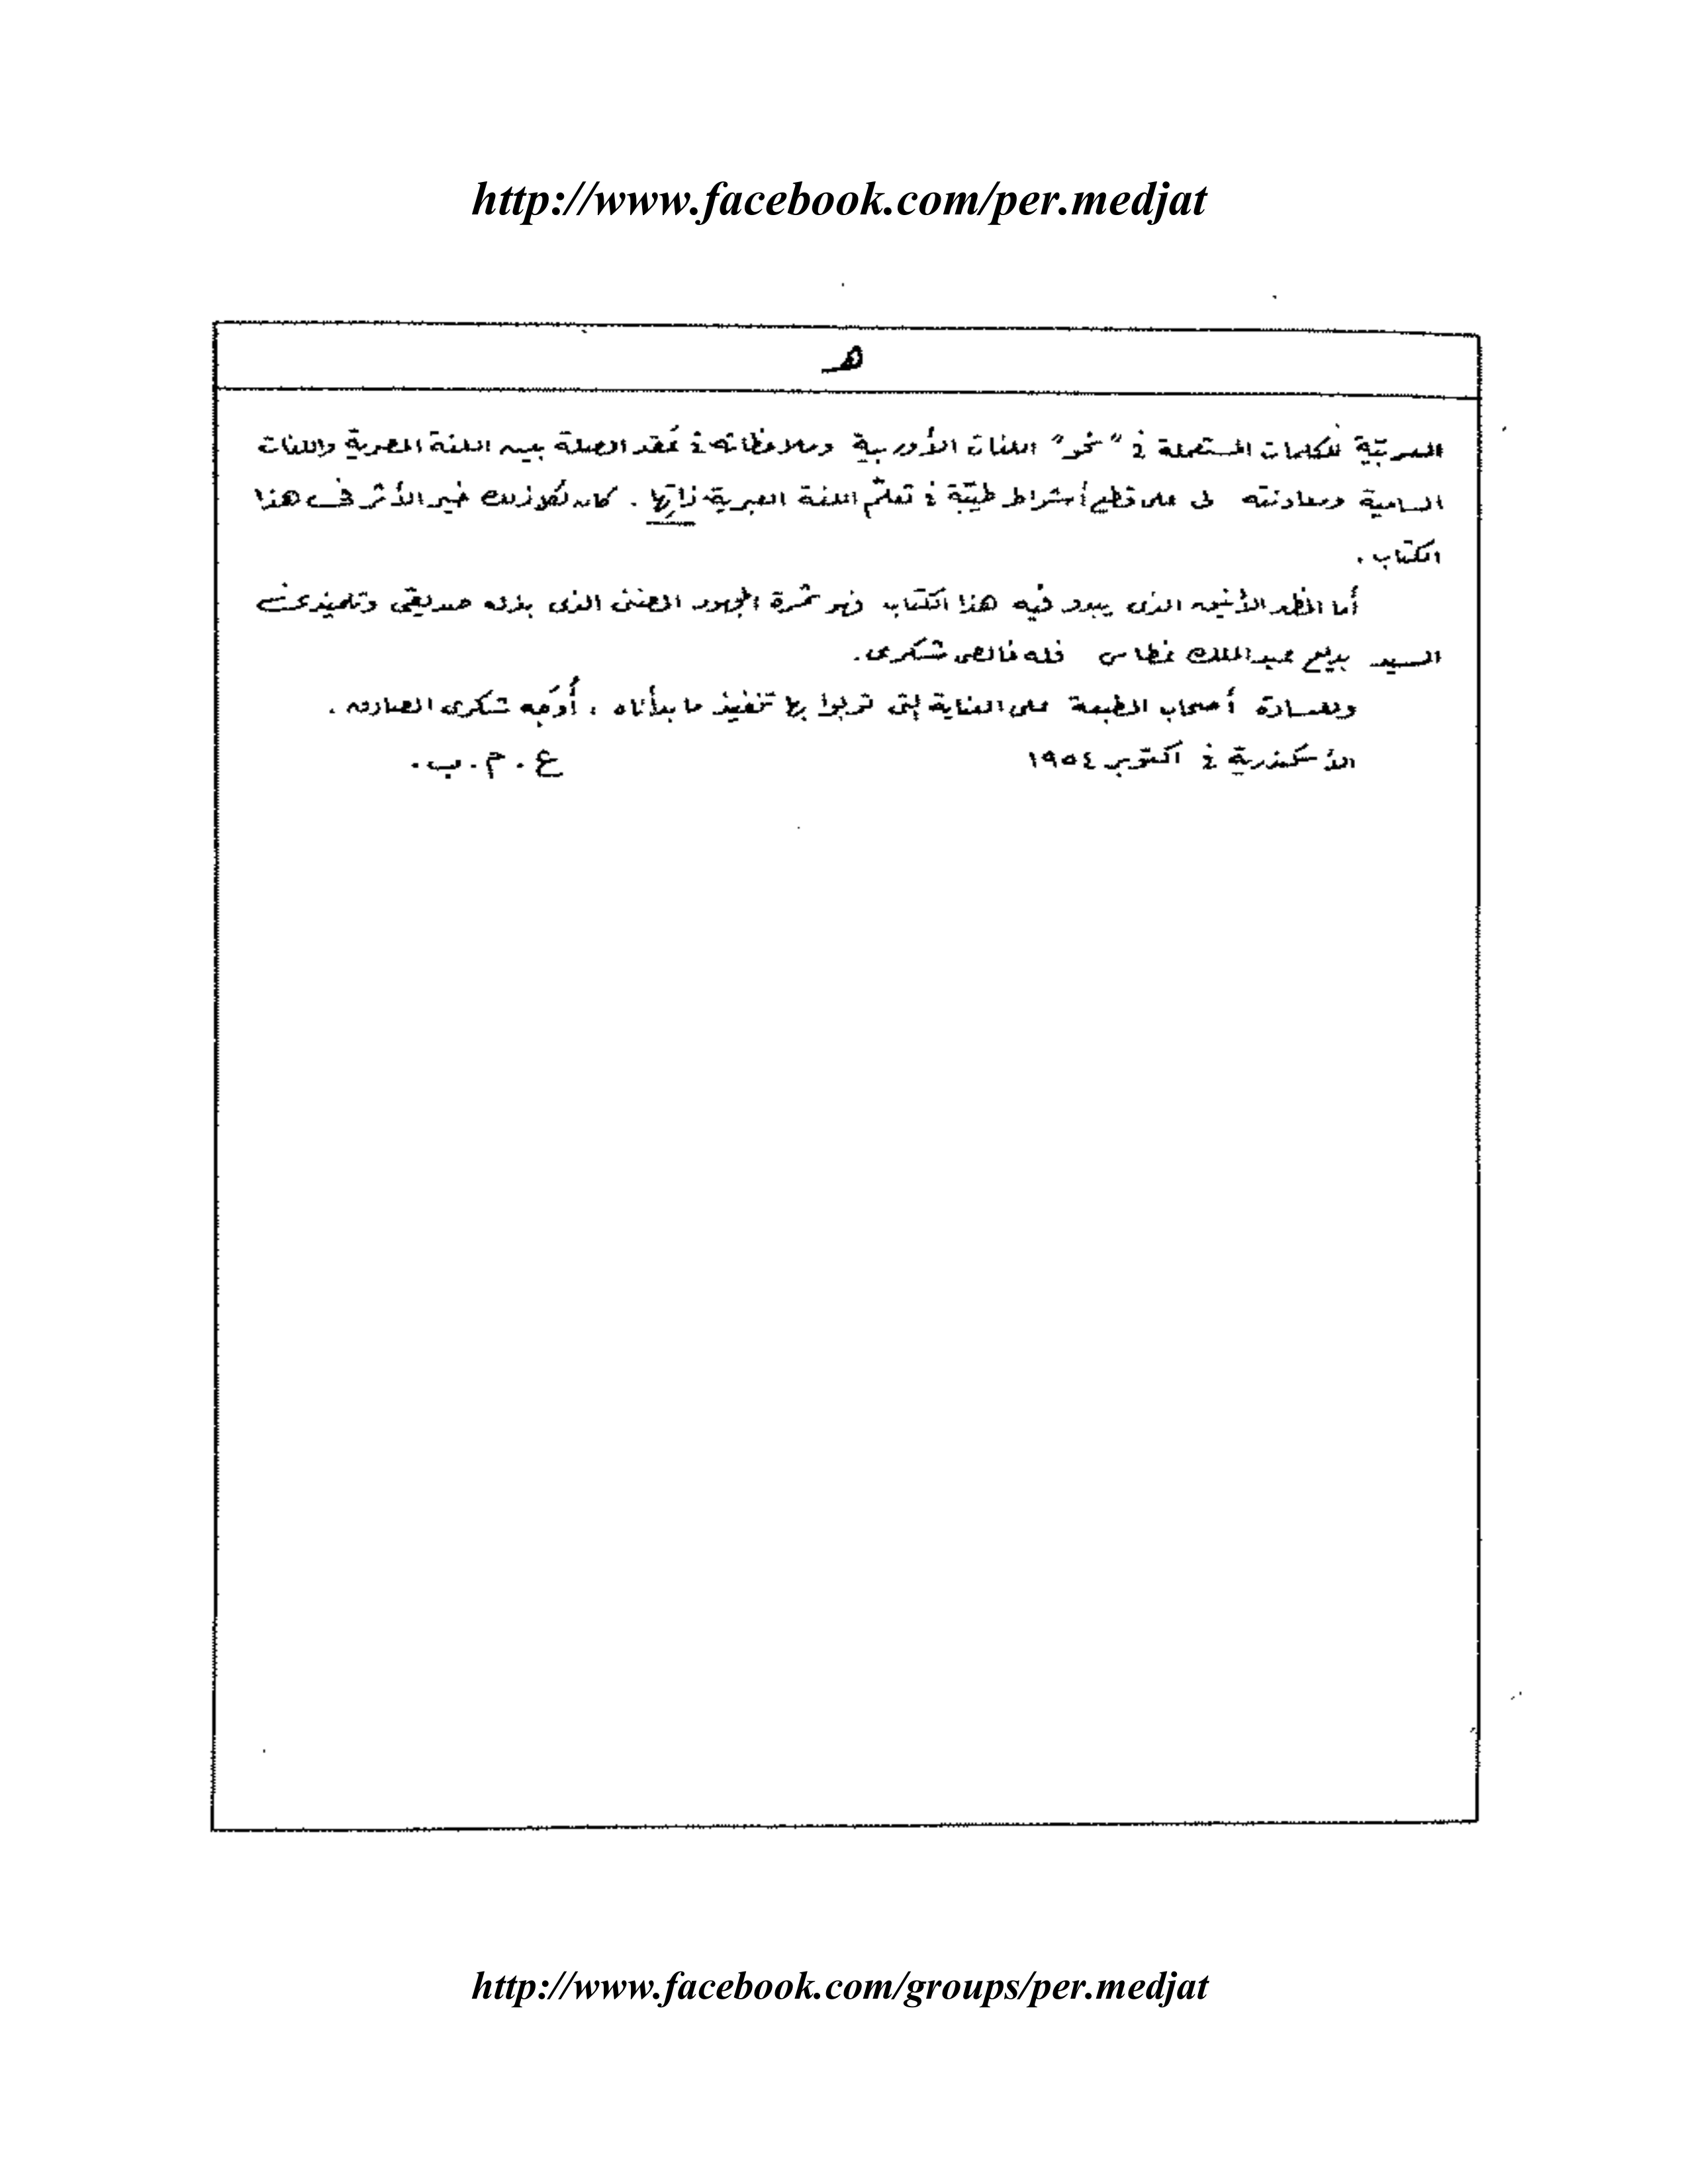 http://www.facebook.com/per.medjat
هـ
العربيّة للكلمات المستعملة فى "نحو" اللغات الأوربية وملاحظاته فى عَقد الصلة بين اللغة المصرية واللغات
السامية ومعاونته لى على قطع أشراط طيّبة فى تعلّم اللغة العبرية ذاتِها. كان لكل ذلك خير الأثر فى هذا
الكتاب.
أما المظهر الأنيق الذى يبدو فيه هذا الكتاب فهو ثمرة المجهود المضنى الذى بذله صديقى وتلميذى
السيد بديع عبد الملك غطاس فله خالص شكرى.
وللسادة أصحاب المطبعة على العناية التى تولوا بها تنفيذ ما بدأناه ، أُوَجِّه شكرى الصادق.
الأسكندرية فى اكتوبر ١٩٥٤ ع. م. ب.
http://www.facebook.com/groups/per.medjat